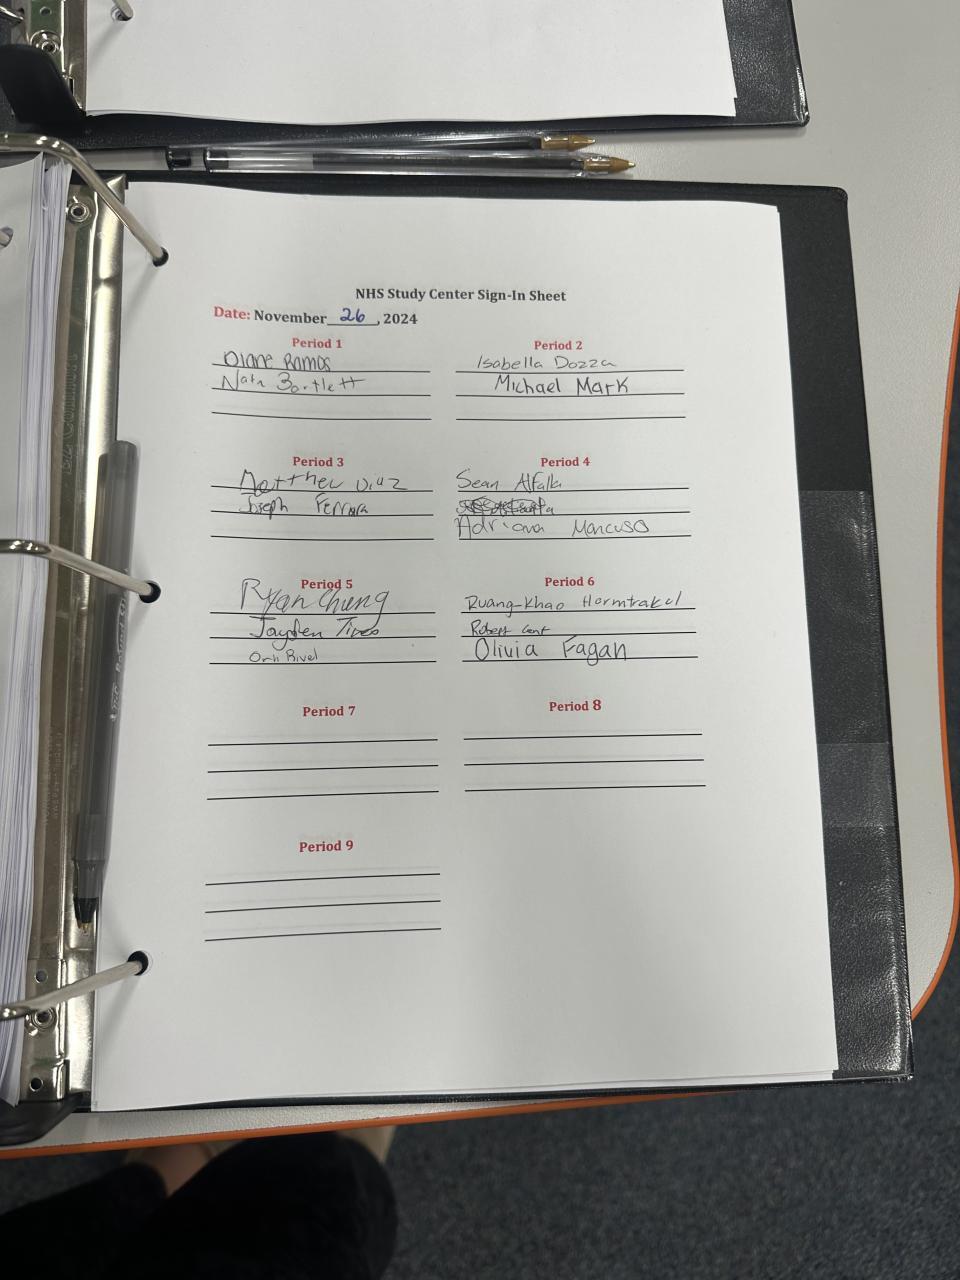 NHS Study Center Sign-In Sheet
Date: November 26, 2024
Period 1
Diane Ramos
Nate Bartlett
Period 2
Isabella Dozza
Michael Mark
Period 3
Matthew Diaz
Joseph Ferrara
Period 4
Sean Alfalla
Adriana Mancuso
Period 5
Ryan Chung
Jayden
Period 6
Ruang-Khao Hormtrakul
Robert
Olivia Fagan
Period 7
Period 8
Period 9